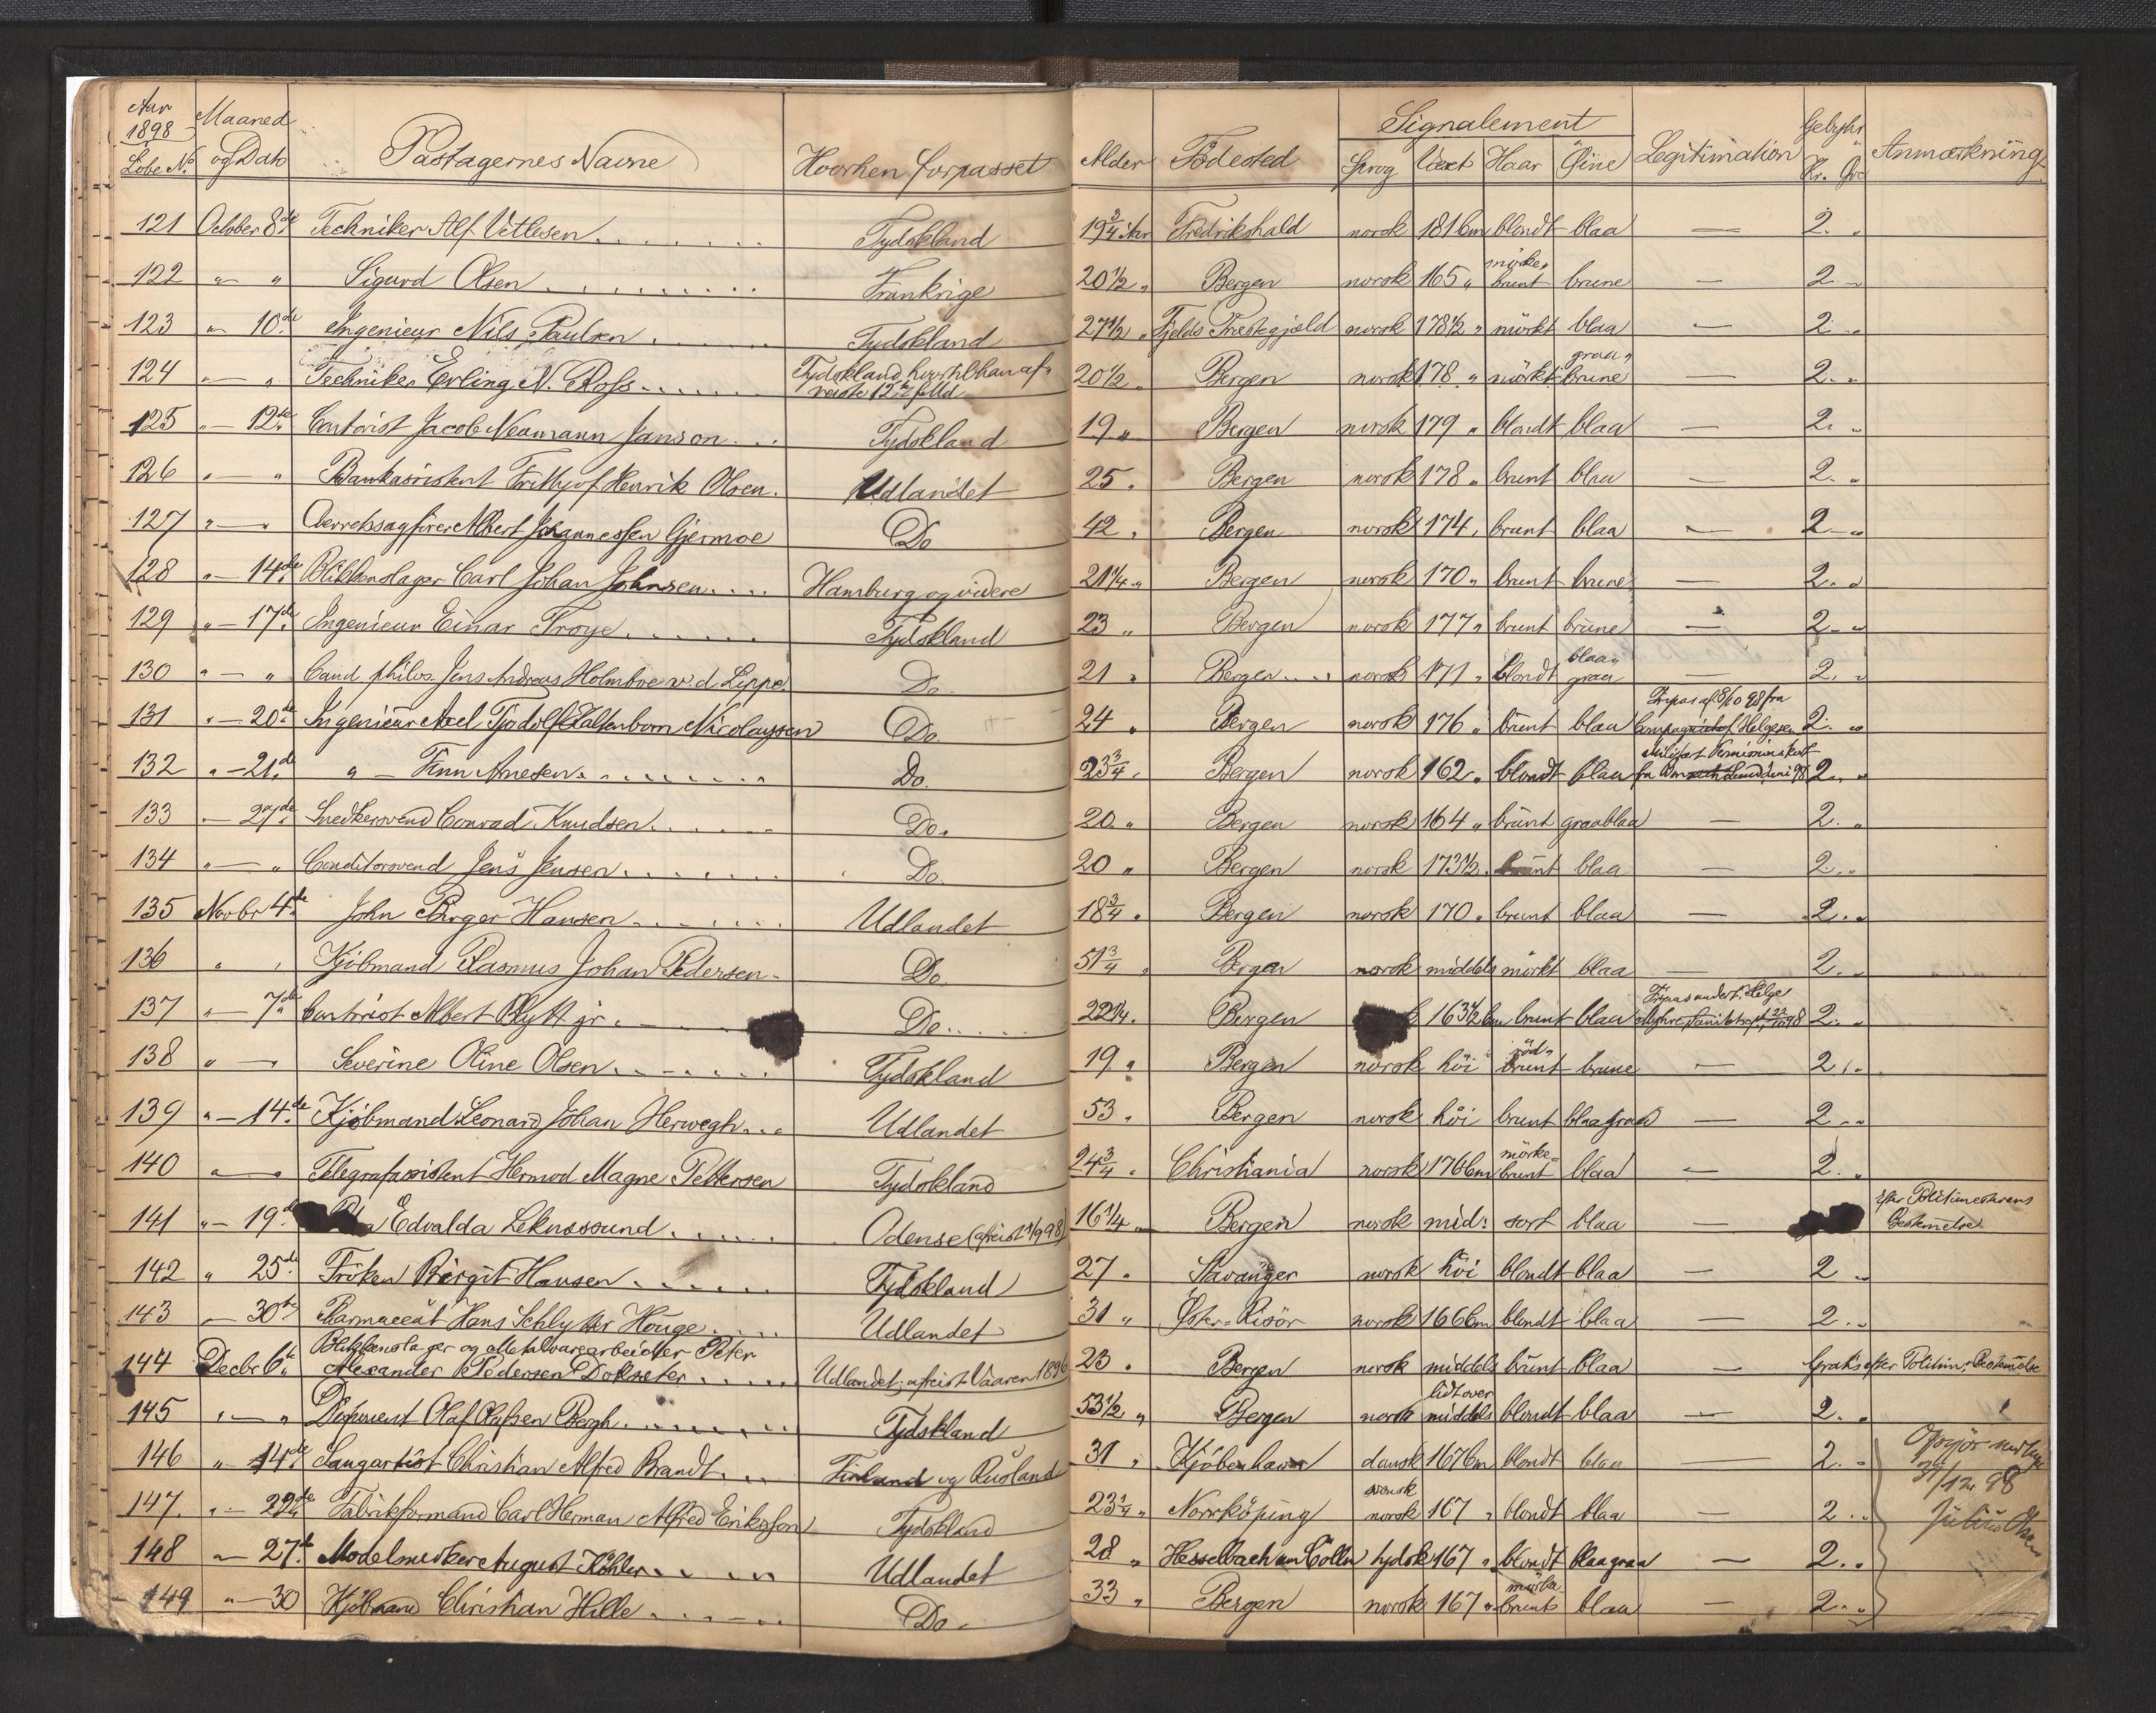 Aar 1898 Maaned Signalement Gebyhr
Löbe No. og Dato Passagernes Navne Hvorhen forpasset Alder Födested Sprog Vext Haar Öine Legitimation Kr. Öre Anmærkning
121 October 8de Techniker Alf Vetlesen Tydskland 19 3/4 Aar Fredrikshald norsk 181 Cm blondt blaa — 2. "
122 " — " Sigurd Olsen Frankrige 20 1/2 " Bergen norsk 165 " mörkebrunt brune — 2. "
123 " 10de Ingenieur Nils Paulsen Tydskland 27 1/2 " Fjelds Præstegjæld norsk 178 1/2 " mörkt blaa — 2 "
124 " — " Techniker Erling N. Ross Tydskland hvortil han afreiste 12te 20 1/2 " Bergen norsk 178 " mörkt graabrune 2. "
125 " — 12te Contorist Jacob Neumann Janson Tydskland 19 " Bergen norsk 179 " blondt blaa — 2. "
126 " — " Bankassistent Frithjof Henrik Olsen. Udlandet 25 " Bergen norsk 178 " brunt blaa — 2. "
127 " — " Overretssagförer Albert Johannessen Gjermoe Do 42 " Bergen norsk 174 " brunt blaa — 2 — "
128 " — 14de Blikkenslager Carl Johan Johnsen Hamburg og videre 21 1/4 " Bergen norsk 170 " brunt brune — 2. "
129 " — 17de Ingenieur Einar Troye Tydskland 23 " Bergen norsk 177 " brunt brune — 2 — "
130 " — " Cand philos Jens Andreas Holmboe v. d. Lippe Do. 21 " Bergen norsk 171 " blondt blaagraa — 2. "
131 " — 20de Ingenieur Axel Tjodolf Faltenborn Nicolaysen Do. 24 " Bergen norsk 176 " brunt blaa af 8/10 98 fra Helgesen 2. "
132 " — 21de " — Finn Arnesen Do. 23 3/4 " Bergen norsk 162 " blondt blaa fra 98 2. "
133 — 27de Snedkersvend Conrad Knudsen Do. 20 " Bergen norsk 164 " brunt graablaa — 2. "
134 " — " Conditorsvend Jens Jensen Do. 20 " Bergen norsk 173 1/2 " brunt blaa — 2. "
135 Novbr 4de John Birger Hansen Udlandet 18 3/4 " Bergen norsk 170 " brunt blaa — 2. "
136 " " Kjöbmand Rasmus Johan Pedersen Do. 51 3/4 " Bergen norsk middels mörkt blaa — 2. "
137 " — 7de Contorist Albert Blytt jr. Do. 22 1/4 " Bergen 163 1/2 Cm brunt blaa 98 2. "
138 " — Severine Oline Olsen Tydskland 19 " Bergen norsk höi rödbrunt brune — 2. "
139 " — 14de Kjöbmand Leonard Johan Herwegh Udlandet 53 " Bergen norsk höi brunt blaagraa — 2 "
140 " — " Telegrafassistent Hermod Magne Pettersen Tydskland 24 3/4 " Christiania norsk 176 Cm mörke=brunt blaa — 2. "
141 " — 19de Edvalda Leknessund Odense 16 1/4 " Bergen norsk mid: sort blaa — Efter Politimesterens Bestemmelse
142 " 25de Fröken Birgit Hansen Tydskland 27 " Stavanger norsk höi blondt blaa — 2 "
143 — 30te Farmaceut Hans Schlytter Houge Udlandet 31 " Öster-Risör norsk 166 Cm blondt blaa — 2. "
Blikkenslager og Metalvarearbeider Peter
144 Decbr 6te Alexander Pedersen Udlandet; afreist Vaaren 1896 23 " Bergen norsk middels brunt blaa — Gratis efter Politim. Bestemmelse
145 " — " Disponent Olaf Olafsen Bergh Tydskland 53 1/2 " Bergen norsk lidt over middels blondt blaa — 2. "
146 " 14de Sangartist Christian Alfred Brandt Finland og Rusland 31 " Kjöbenhavn dansk 167 Cm blondt blaa — 2. " Opgjör 31/12 98
147. " — 22de Fabrikformand Carl Herman Alfred Eriksson Tydskland 23 1/4 " Norrköping svensk norsk 167 " blondt blaa — 2. " Julius Olsen
148 " — 27de Modelsnedker August Köhler Udlandet 28 " Hesselbach tydsk 167 " blondt blaagraa — 2. "
149 " — 30 Kjöbmand Christian Hille Do. 33 " Bergen norsk 167 " mörkebrunt blaa — 2. "